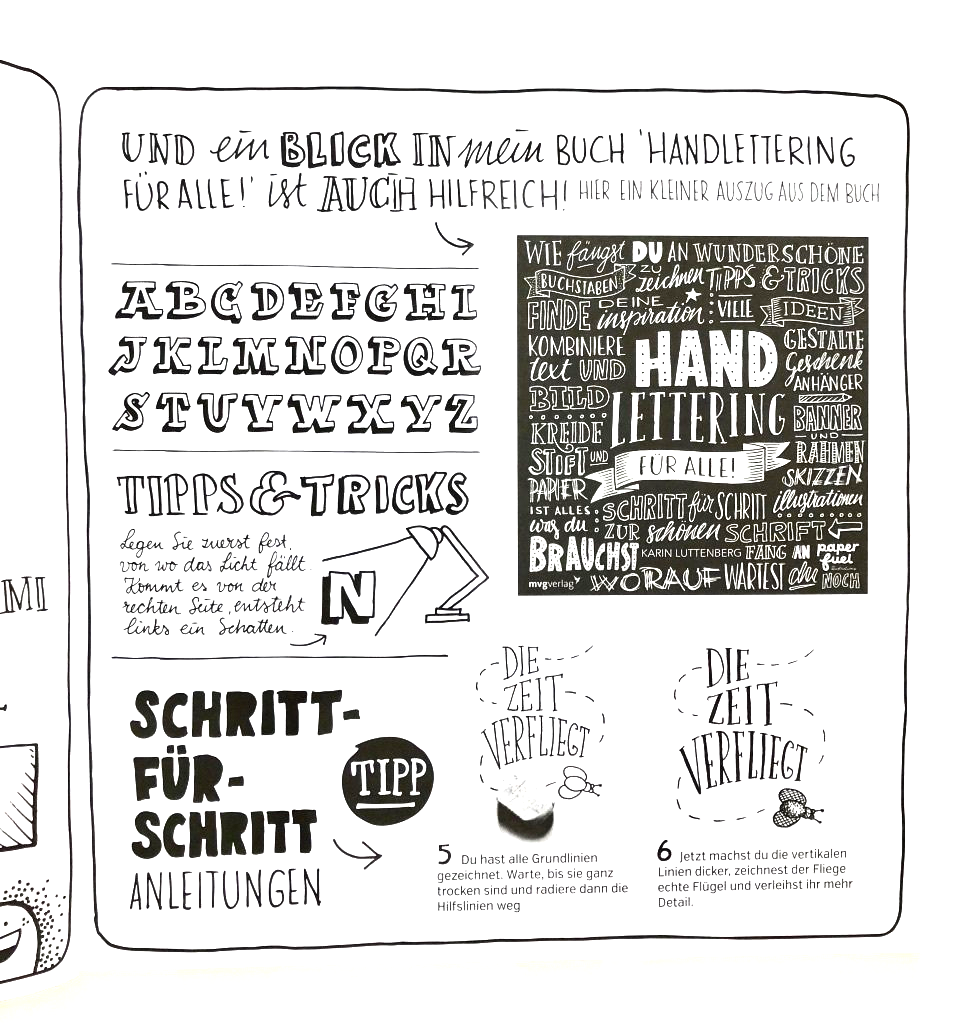 UND ein BLICK IN mein BUCH 'HANDLETTERING
FÜR ALLE!' ist AUCH HILFREICH! HIER EIN KLEINER AUSZUG AUS DEM BUCH
ABCDEFGHI
JKLMNOPQR
STUVWXYZ
TIPPS & TRICKS
Legen Sie zuerst fest,
von wo das Licht fällt.
Kommt es von der
rechten Seite, entsteht
links ein Schatten.
N
WIE fängst DU AN WUNDERSCHÖNE
BUCHSTABEN ZU zeichnen TIPPS & TRICKS
FINDE DEINE inspiration VIELE IDEEN
KOMBINIERE
text UND
BILD
KREIDE
STIFT UND
PAPIER
IST ALLES
was du
BRAUCHST
HAND
LETTERING
FÜR ALLE!
GESTALTE
Geschenk
ANHÄNGER
BANNER
UND
RAHMEN
SKIZZEN
illustrationen
SCHRITT für SCHRITT
ZUR schönen SCHRIFT
KARIN LUTTENBERG FANG AN
paper
fuel
mvgverlag WORAUF WARTEST du NOCH
SCHRITT-
FÜR-
SCHRITT
ANLEITUNGEN
TIPP
DIE
ZEIT
VERFLIEGT
5 Du hast alle Grundlinien
gezeichnet. Warte, bis sie ganz
trocken sind und radiere dann die
Hilfslinien weg
DIE
ZEIT
VERFLIEGT
6 Jetzt machst du die vertikalen
Linien dicker, zeichnest der Fliege
echte Flügel und verleihst ihr mehr
Detail.
MI